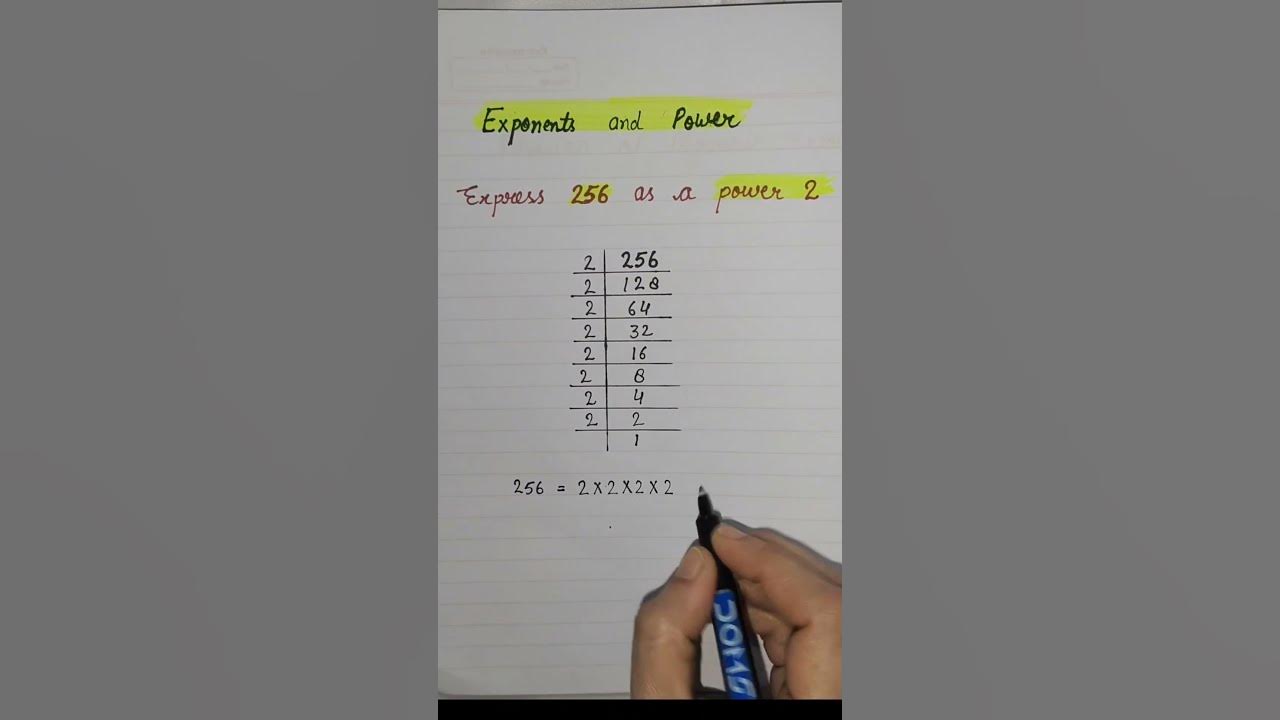 Exponents and Power
Express 256 as a power 2
2 | 256
2 | 128
2 | 64
2 | 32
2 | 16
2 | 8
2 | 4
2 | 2
| 1
256 = 2 × 2 × 2 × 2